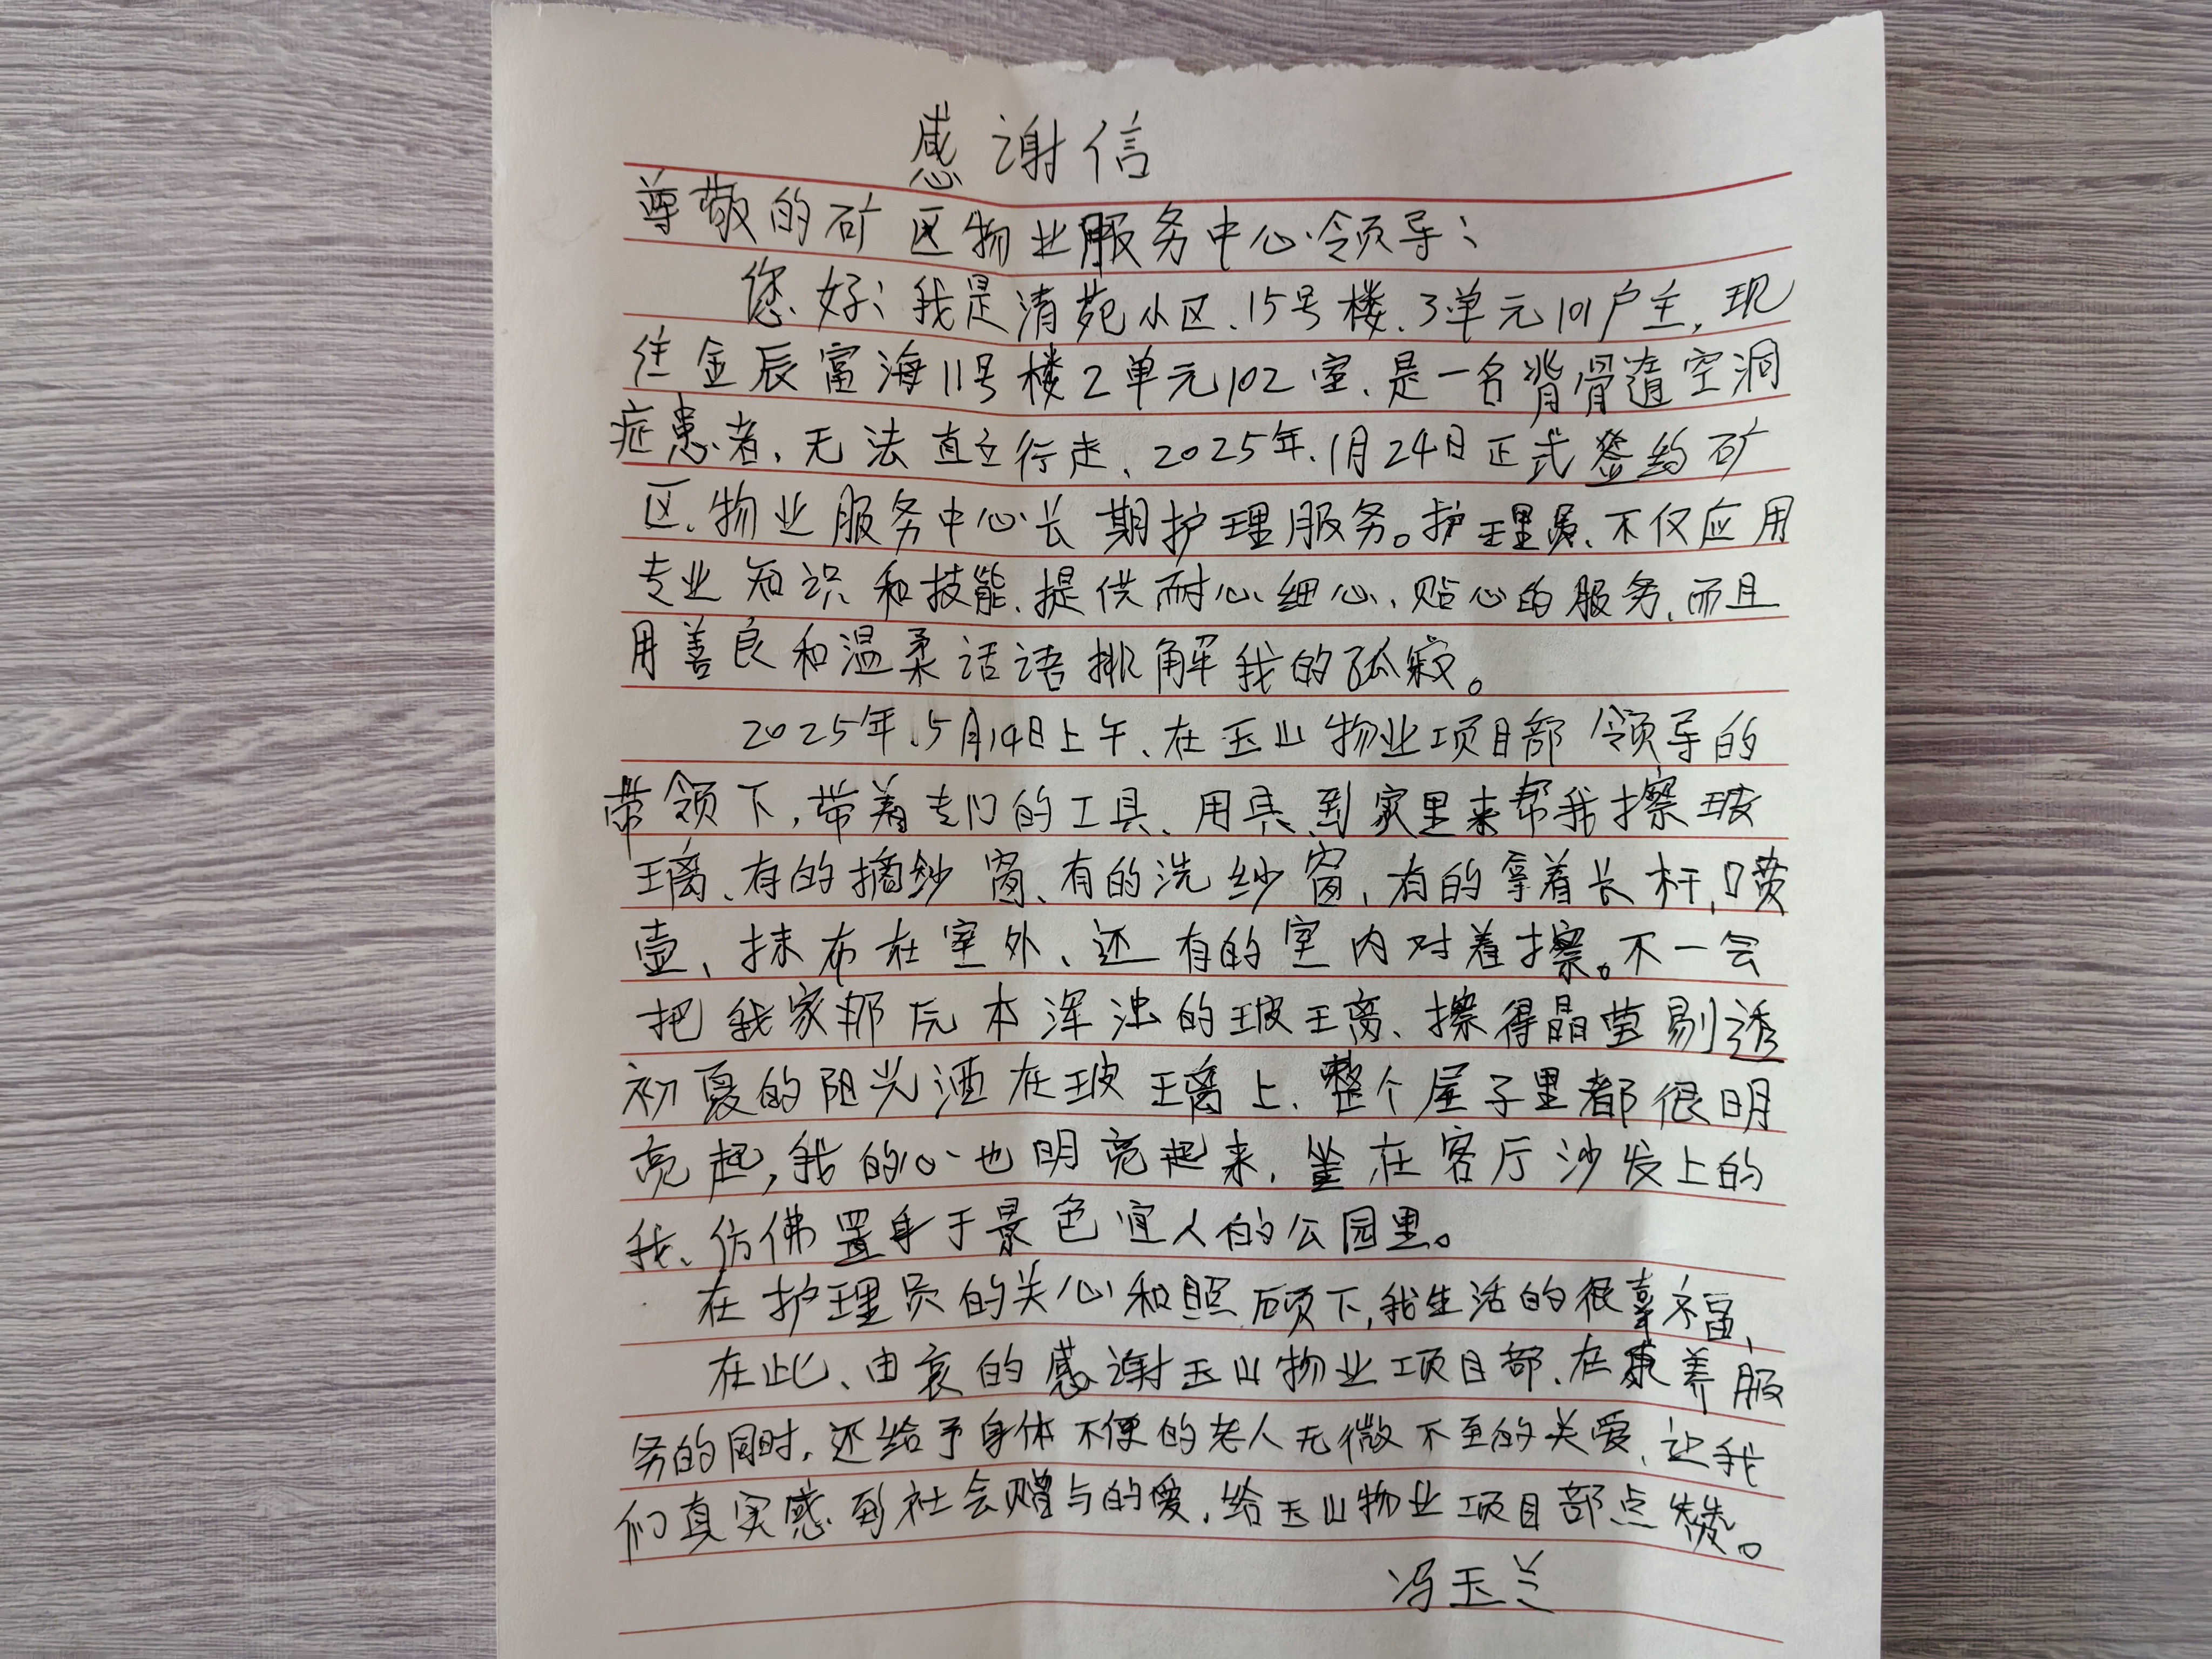 感谢信
尊敬的矿区物业服务中心领导：
您好：我是清苑小区、15号楼、3单元101户主，现
住金辰富海11号楼2单元102室、是一名背骨遀空洞
症患者、无法直立行走、2025年、1月24日正式签约矿
区、物业服务中心长期护理服务。护理员、不仅应用
专业知识和技能、提供耐心细心、贴心的服务、而且
用善良和温柔话语排解我的孤寂。
2025年、5月14日上午、在玉山物业项目部领导的
带领下，带着专门的工具、用具到家里来帮我擦玻
璃、有的摘纱窗、有的洗纱窗、有的拿着长杆、喷
壶、抹布在室外、还有的室内对着擦。不一会
把我家那原本浑浊的玻璃、擦得晶莹剔透
初夏的阳光洒在玻璃上、整个屋子里都很明
亮起，我的心也明亮起来、坐在客厅沙发上的
我、仿佛置身于景色宜人的公园里。
在护理员的关心和照顾下，我生活的很幸福、
在此、由衷的感谢玉山物业项目部、在康养服
务的同时、还给予身体不便的老人无微不至的关爱、让我
们真实感到社会赠与的爱、给玉山物业项目部点赞。
冯玉兰